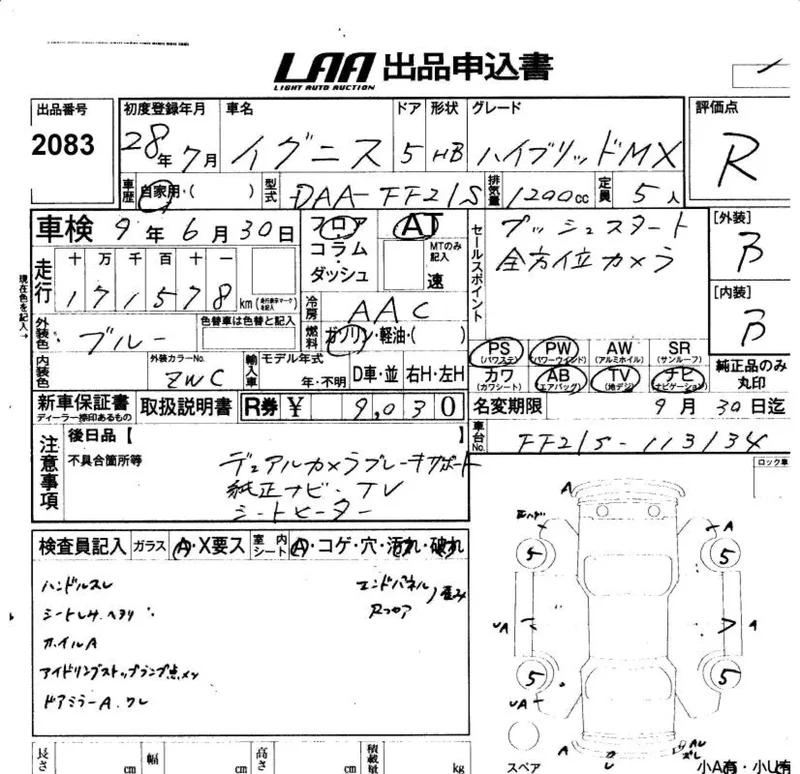 LAA 出品申込書
LIGHT AUTO AUCTION
出品番号
2083
初度登録年月
28年 7月
車名
イグニス
ドア
5
形状
HB
グレード
ハイブリッドMX
評価点
R
車歴
自家用・( )
型式
DAA-FF21S
排気量
1200cc
定員
5人
車検 9年 6月 30日
フロア
コラム
・
ダッシュ
AT
MTのみ記入
速
セールスポイント
プッシュスタート
全方位カメラ
[外装]
B
[内装]
B
現在色を記入→
走行
十 万 千 百 十 一
171578km
(走行表示マークを記入)
冷房
AAC
燃料
ガソリン・軽油・( )
外装色
ブルー
色替車は色替と記入
内装色
外装カラーNo.
ZWC
輸入車
モデル年式
年・不明
D車・並
右H・左H
PS
(パワステ)
PW
(パワーウインド)
AW
(アルミホイル)
SR
(サンルーフ)
カワ
(カワシート)
AB
(エアバッグ)
TV
(地デジ)
ナビ
(ナビゲーション)
純正品のみ
丸印
新車保証書
ディーラー捺印あるもの
取扱説明書
R券 ¥ 9,030
名変期限 9月 30日迄
車台No.
FF21S-113134
注意事項
後日品【 】
不具合箇所等
デュアルカメラブレーキサポート
純正ナビ・TV
シートヒーター
ロック車
検査員記入
ガラス
A・X要ス
室内シート
A・コゲ・穴・汚れ・破れ
ハンドルスレ
エンドパネル
Rフロア
歪み
ホイルA
アイドリングストップランプ点メツ
ドアミラーA.ワレ
A
A
5
5
UA
A
5
5
UA
A
スペア
長さ
cm
幅
cm
高さ
cm
積載量
kg
小A有・小U有